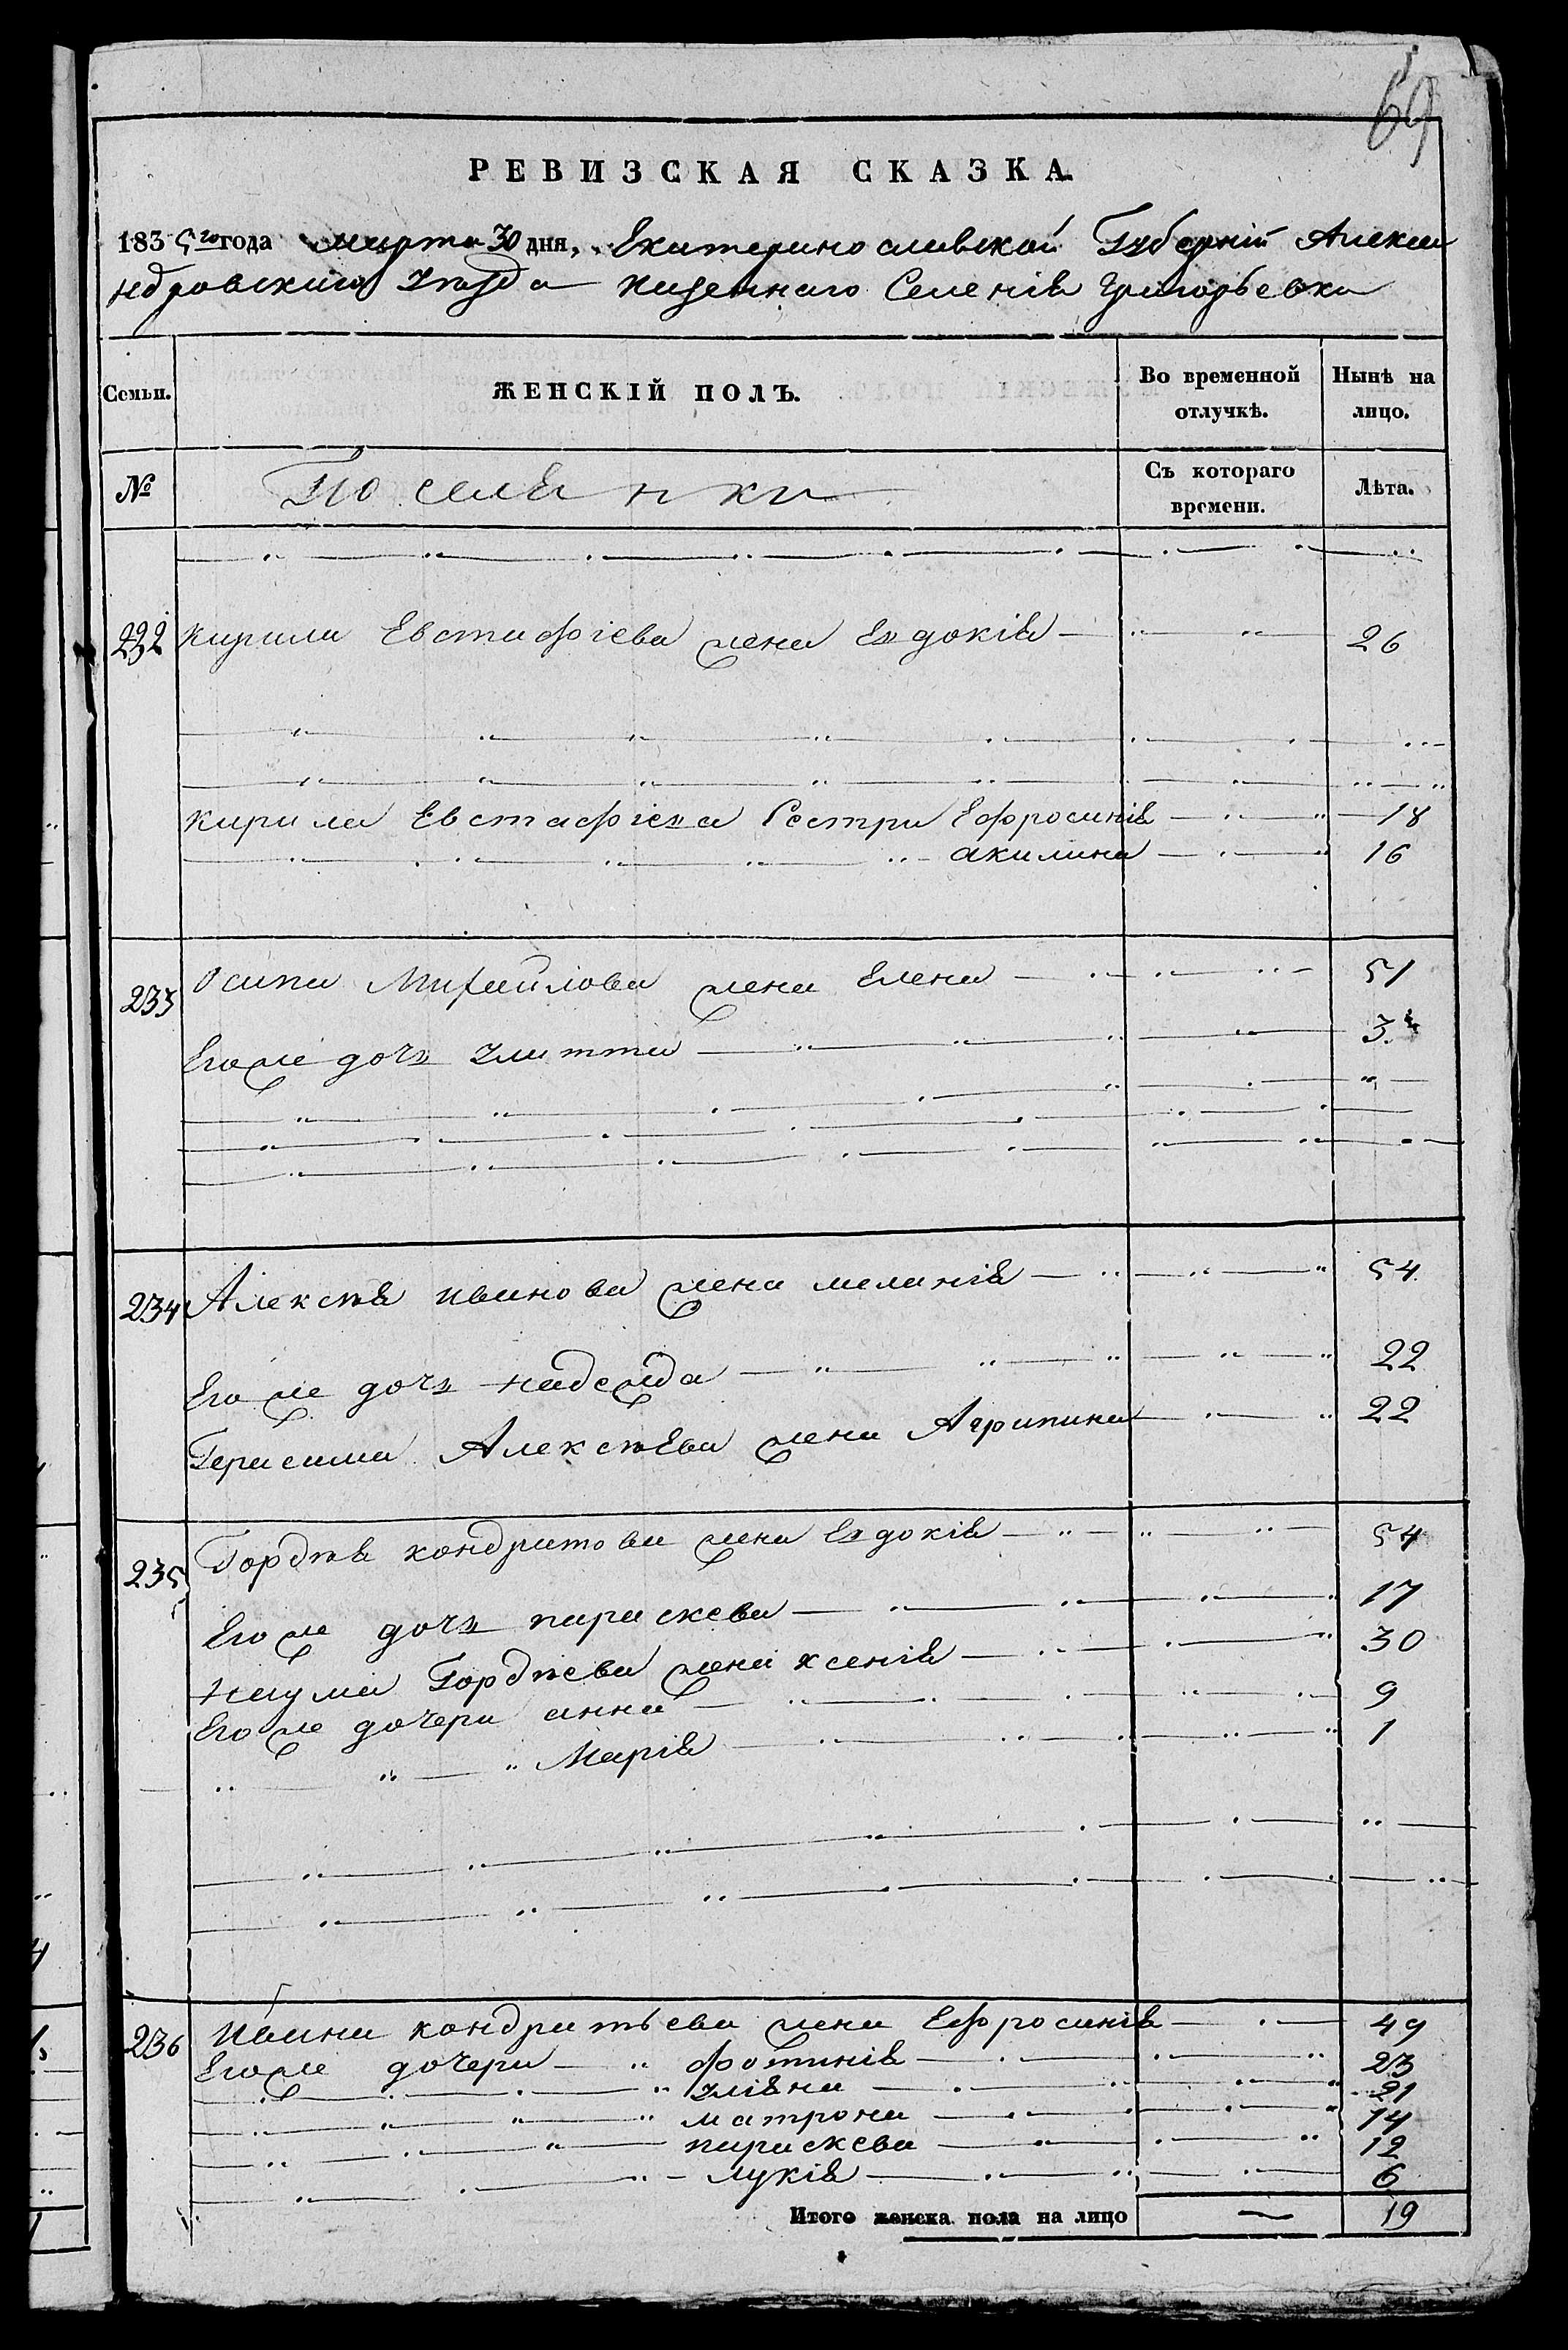 69
РЕВИЗСКАЯ СКАЗКА.
1835го года марта 30 дня, Екатеринославской Губерніи Алекса
ндровскаго уѣзда казеннаго Селенія Григорьевка
Семьи. ЖЕНСКІЙ ПОЛЪ. Во временной отлучкѣ. Нынѣ на лицо.
№ Поселянки Съ котораго времени. Лѣта.
232 Кирила Евстафіева жена Евдокія 26
Кирила Евстафіева Сестри Ефросинія 18
акилина 16
233 Осипа Михайлова жена Елена 51
Его же дочь 3
234 Алексѣя иванова жена меланія 54
Его же дочь надежда 22
Герасима Алексѣева жена Агрипина 22
235 Гордѣя кондратова жена Евдокія 54
Его же дочь параскева 17
Наума Гордѣева жена ксенія 30
Его же дочери анна 9
Марія 1
236 Ивана кондратьева жена Ефросинія 49
Его же дочери фотинія 23
улiяна 21
матрона 14
параскева 12
лукія 6
Итого женска пола на лицо 19